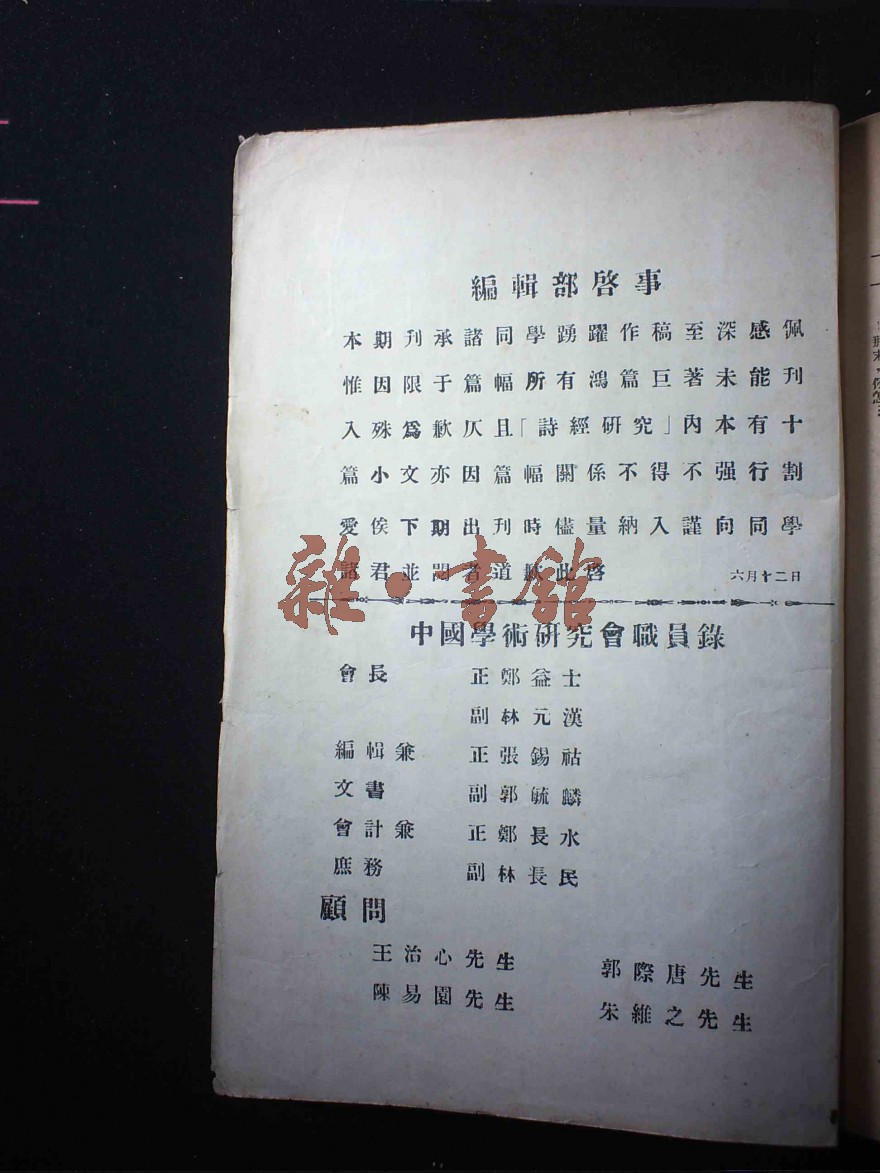 編輯部啓事
本期刊承諸同學踴躍作稿至深感佩
惟因限于篇幅所有鴻篇巨著未能刊
入殊爲歉仄且「詩經研究」內本有十
篇小文亦因篇幅關係不得不强行割
愛俟下期出刊時儘量納入謹向同學
諸君並閱者道歉此啓 六月十二日
雜·書館
中國學術研究會職員錄
會長 正鄭益士
副林元漢
編輯兼 正張錫祜
文書 副郭毓麟
會計兼 正鄭長水
庶務 副林長民
顧問
王治心先生 郭際唐先生
陳易園先生 朱維之先生